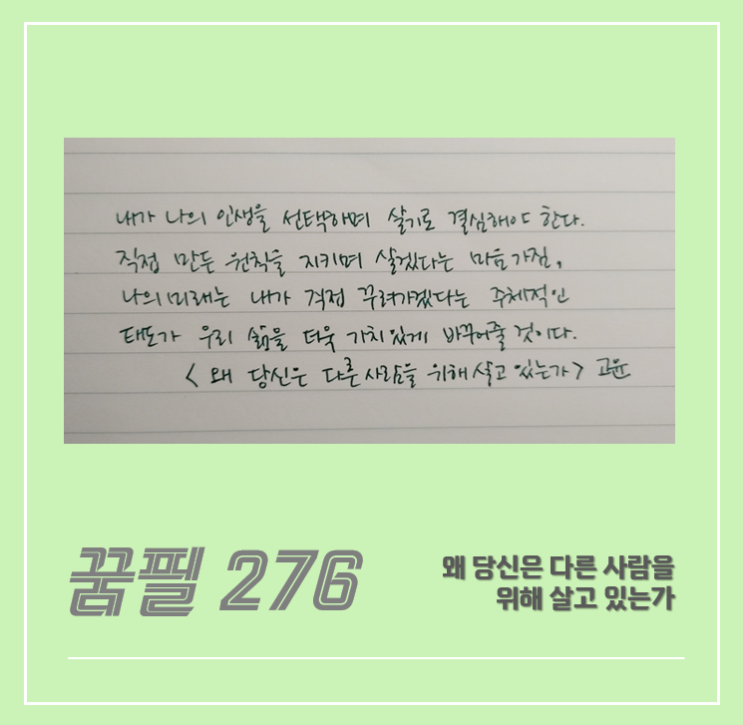 내가 나의 인생을 선택하며 살기로 결심해야 한다.
직접 만든 원칙을 지키며 살겠다는 마음가짐,
나의 미래는 내가 직접 꾸려가겠다는 주체적인
태도가 우리 삶을 더욱 가치있게 바꾸어줄 것이다.
< 왜 당신은 다른 사람을 위해 살고 있는가 > 고윤
꿈필 276
왜 당신은 다른 사람을
위해 살고 있는가